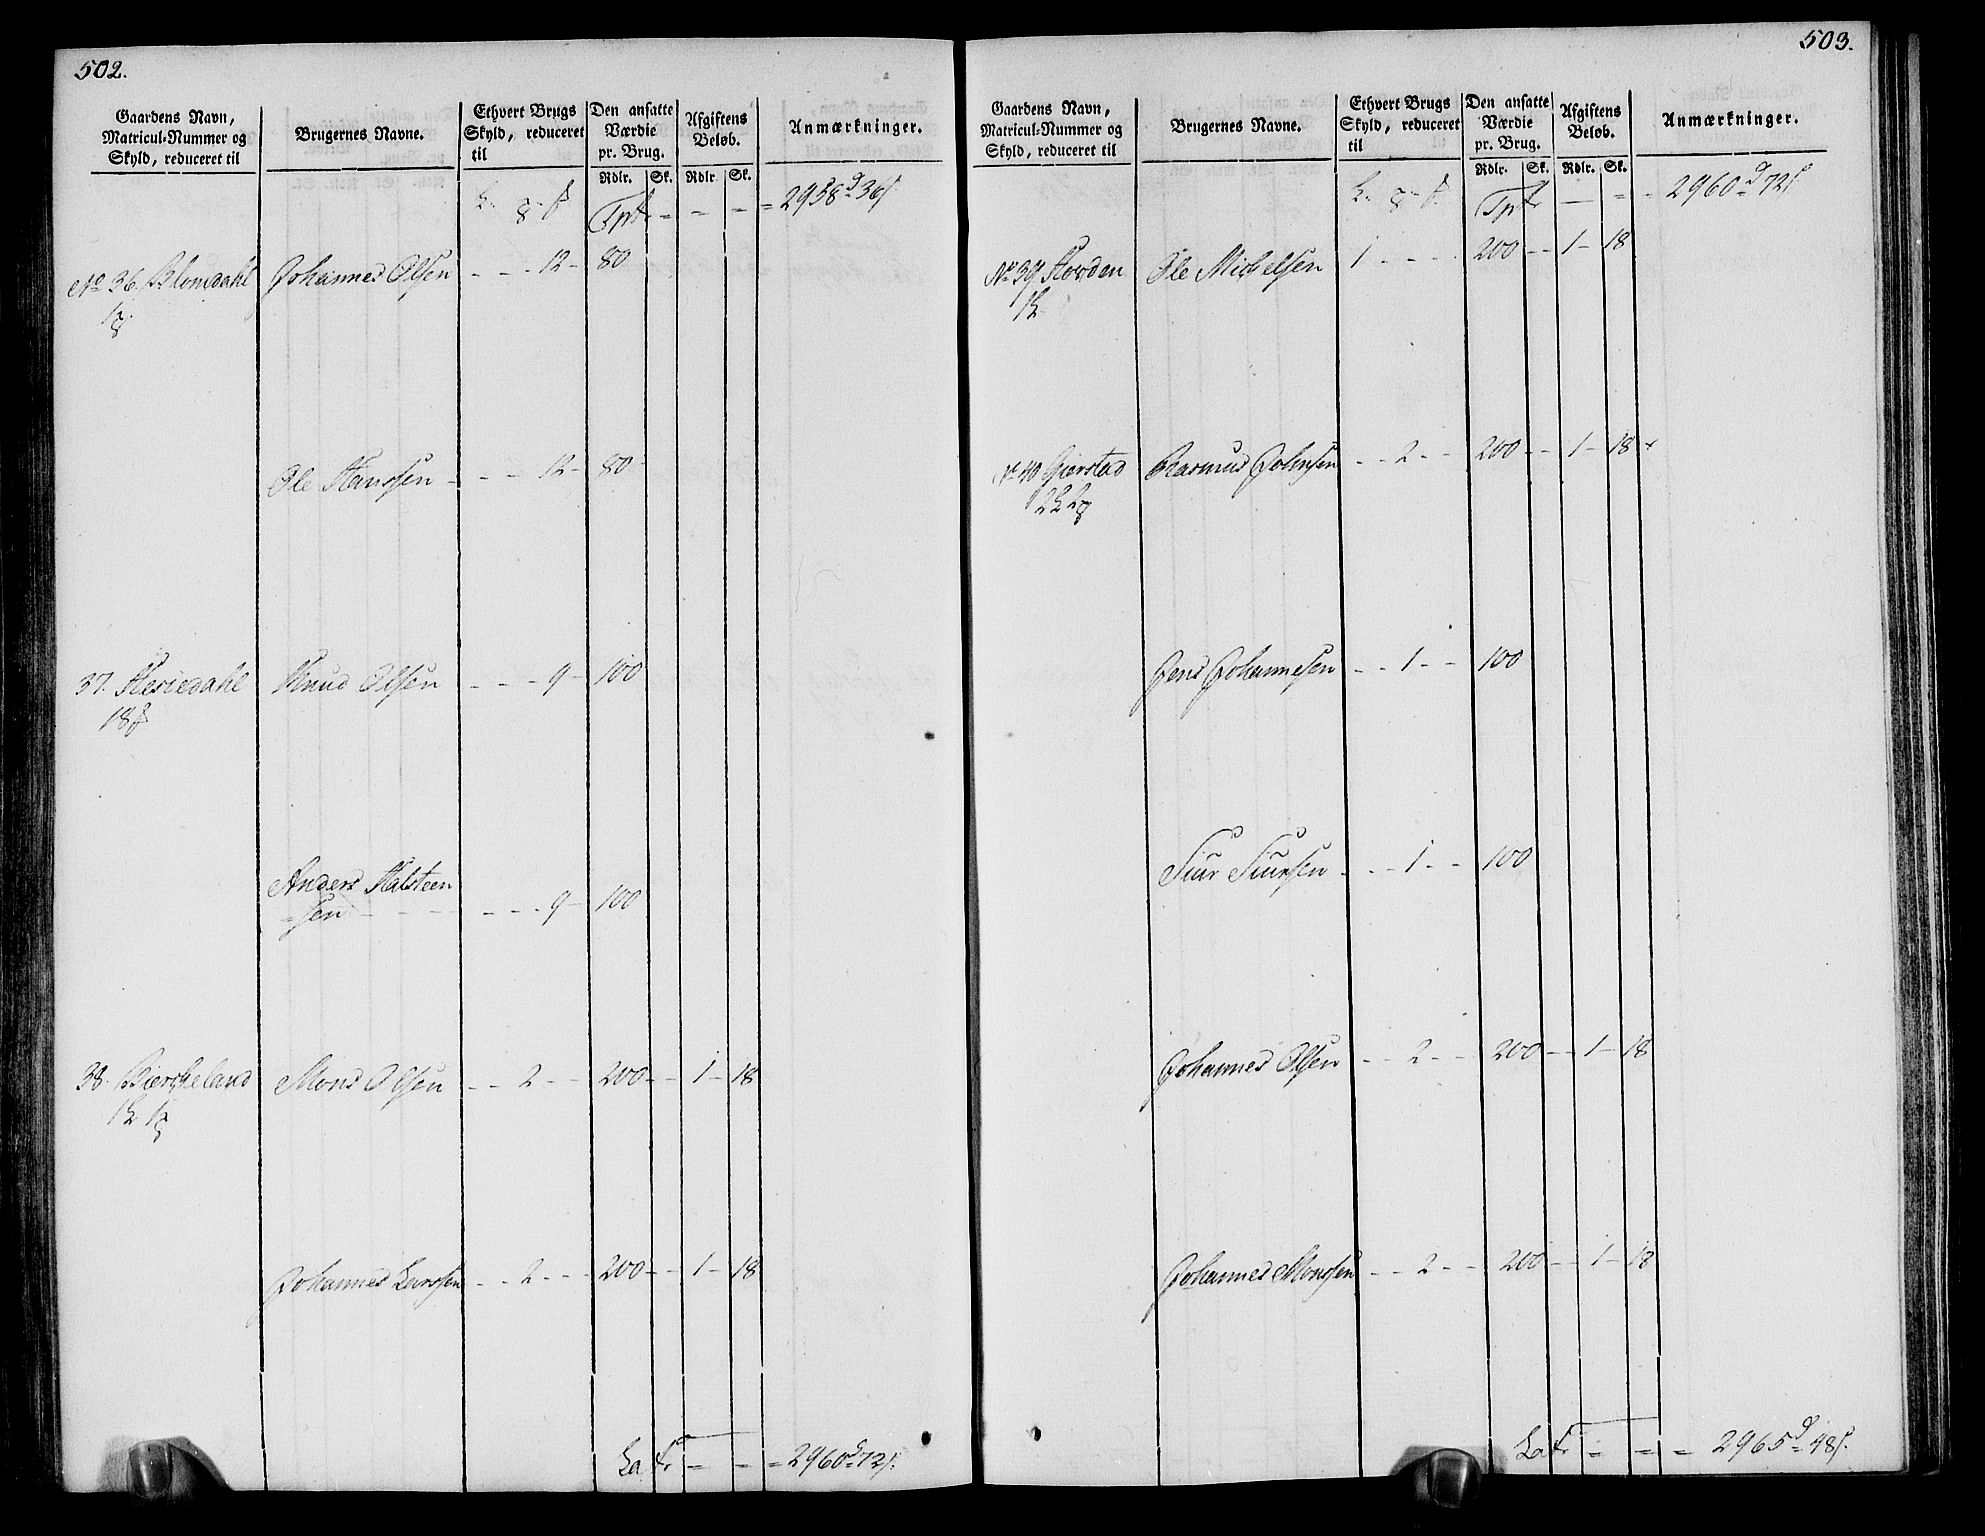 502.
Gaardens Navn,
Matricul-Nummer og
Skyld, reduceret til
Brugernes Navne.
Ethvert Brugs
Skyld, reduceret
til
Den ansatte
Værdie
pr. Brug.
Rdlr. Sk.
Afgiftens
Beløb.
Rdlr. Sk.
Anmærkninger.
Tptr = - - - = 2958 d 36 s
No 36. Blomdahl Johannes Olsen - - - 12 - 80
1
Ole Hanssen - - - 12 - 80 -
37. Hesiedahl Knud Olsen - - - 9 - 100
18
Anders Halsteen
=sen - - - - - - - 9 - 100
38. Bierkeland Mons Olsen - - 2 - - 200 - - 1 - 18
1 1
Johannes Larssen - - 2 - - - 200 - - 1 - 18
Latr = - = 2960 d 72 s.
503.
Gaardens Navn,
Matricul-Nummer og
Skyld, reduceret til
Brugernes Navne.
Ethvert Brugs
Skyld, reduceret
til
Den ansatte
Værdie
pr. Brug.
Rdlr. Sk.
Afgiftens
Beløb.
Rdlr. Sk.
Anmærkninger.
Tptr - = = 2960 d 72 s
No 39 Hovden Ole Michelsen 1 - - - 200 - - 1 - 18
1
No 40 Gierstad Rasmus Johnsen - - 2 - - 200 - - 1 - 18
2 2
Jens Johannesen - - 1 - - 100
Siur Siursen - - - 1 - - 100
Johannes Olsen - - 2 - - 200 - - 1 - 18
Johannes Monssen - - 2 - - 200 - - 1 - 18
Latr = = = 2965 d 48 s.